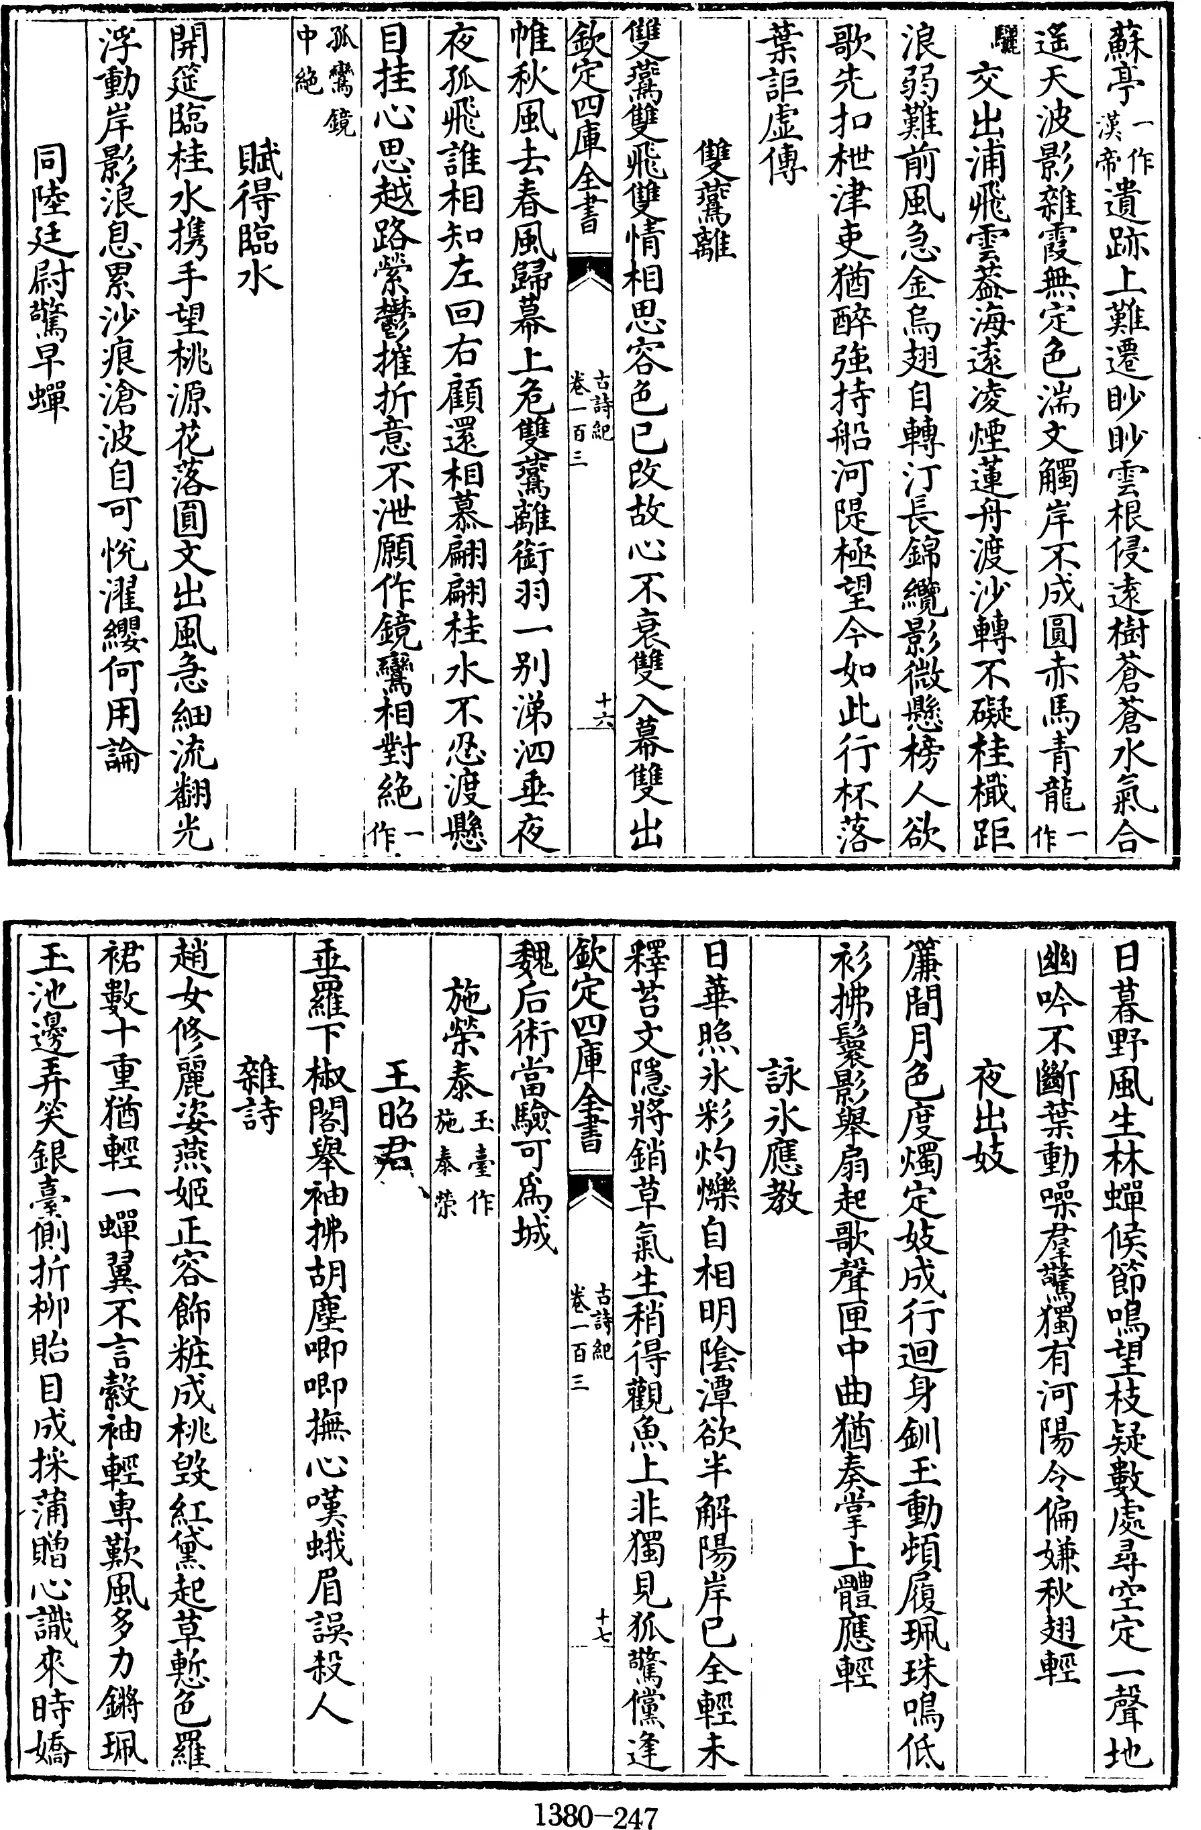 蘇亭一作漢帝遺跡上難遷眇眇雲根侵遠樹蒼蒼水氣合
遥天波影雜霞無定色湍文觸岸不成圓赤馬青龍一作
驪交出浦飛雲蓋海遠凌煙蓮舟渡沙轉不礙桂檝距
浪弱難前風急金烏翅自轉汀長錦纜影微懸榜人欲
歌先扣枻津吏猶醉強持船河隄極望今如此行杯落
葉詎虛傳
雙鷰離
雙鷰雙飛雙情相思容色已改故心不衰雙入幕雙出
欽定四庫全書
古詩紀
卷一百三
十六
帷秋風去春風歸幕上危雙鷰離銜羽一别涕泗垂夜
夜孤飛誰相知左回右顧還相慕翩翩桂水不忍渡懸
目挂心思越路縈鬱摧折意不泄願作鏡鸞相對絶一作
孤鸞鏡中絶
賦得臨水
開筵臨桂水携手望桃源花落圓文出風急細流翻光
浮動岸影浪息累沙痕滄波自可悅濯纓何用論
同陸廷尉驚早蟬
日暮野風生林蟬候節鳴望枝疑數處尋空定一聲地
幽吟不斷葉動噪羣驚獨有河陽令偏嫌秋翅輕
夜出妓
簾間月色度燭定妓成行迴身釧玉動頓履珮珠鳴低
衫拂鬟影舉扇起歌聲匣中曲猶奏掌上體應輕
詠氷應教
日華照氷彩灼爍自相明陰潭欲半解陽岸已全輕未
釋苔文隱將銷草氣生稍得觀魚上非獨見狐驚儻逢
欽定四庫全書
古詩紀
卷一百三
十七
魏后術當驗可為城
施榮泰玉臺作施泰榮
王昭君
垂羅下椒閣舉袖拂胡塵唧唧撫心嘆蛾眉誤殺人
雜詩
趙女修麗姿燕姬正容飾粧成桃毀紅黛起草慙色羅
裙數十重猶輕一蟬翼不言縠袖輕專歎風多力鏘珮
玉池邊弄笑銀臺側折柳貽目成採蒲贈心識來時嬌
1380-247